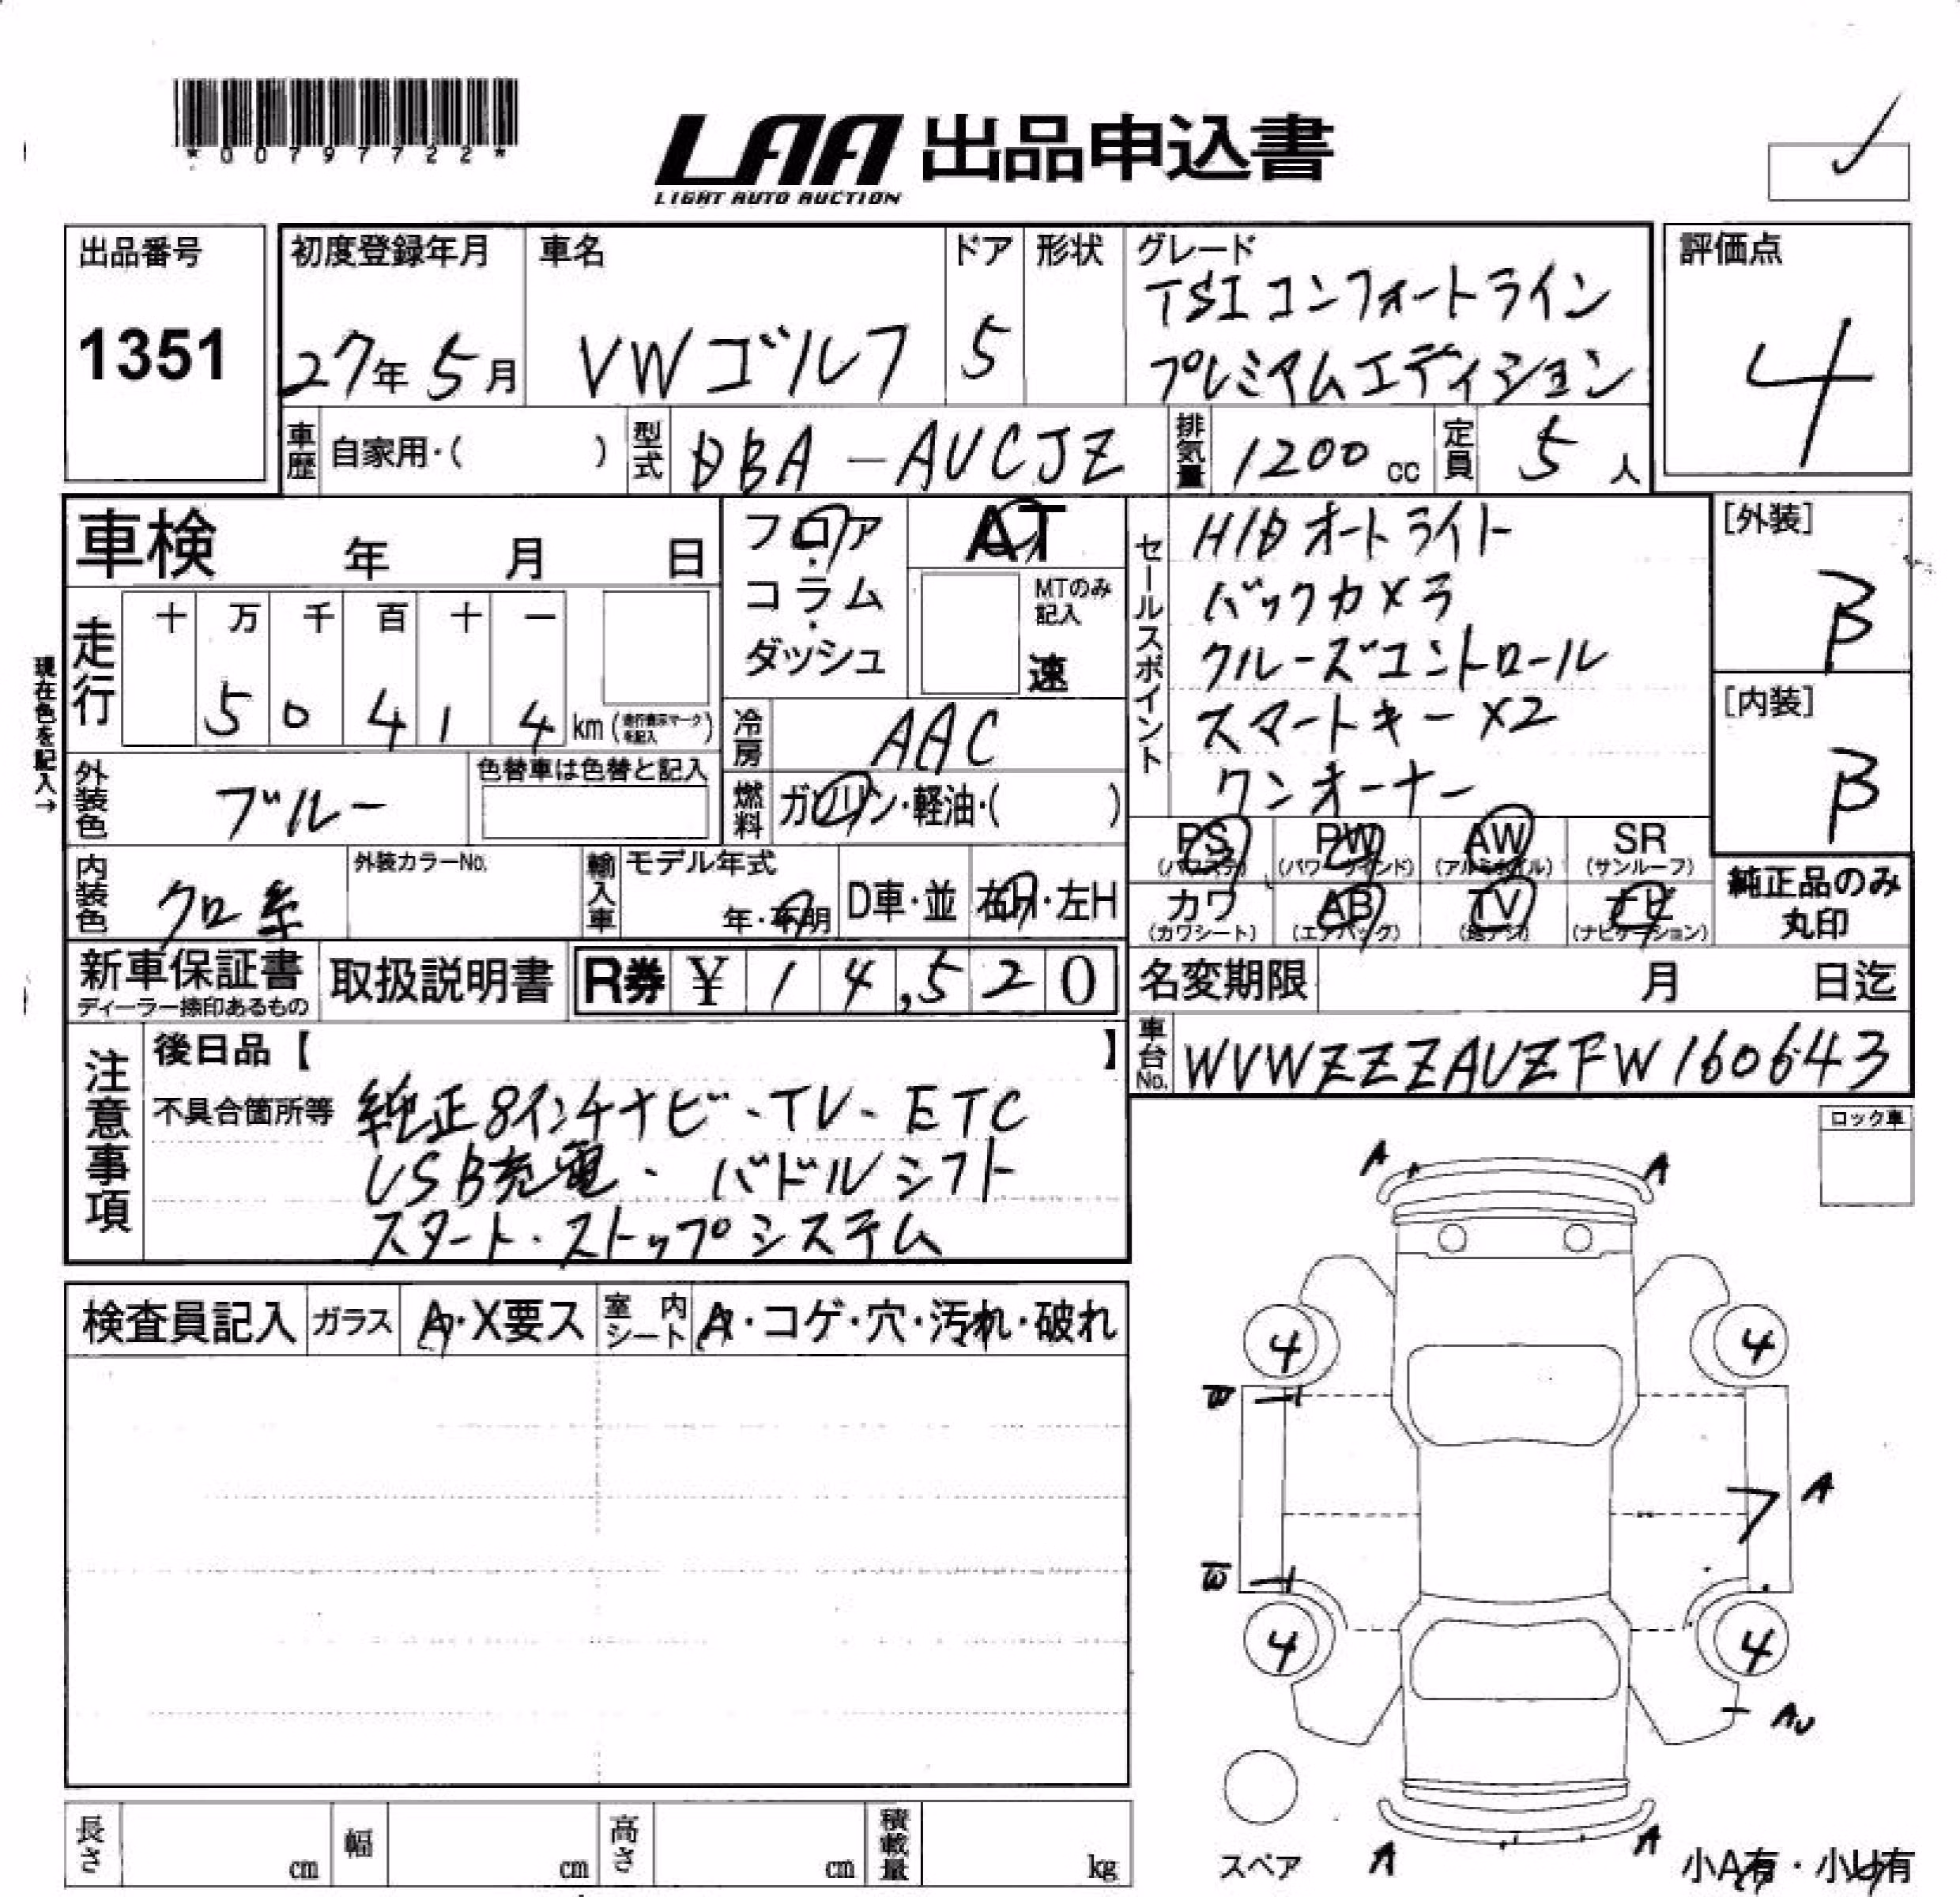 *00797722*
LAA 出品申込書
LIGHT AUTO AUCTION
出品番号
1351
初度登録年月
27年5月
車名
VWゴルフ
ドア
5
形状
グレード
TSIコンフォートライン
プレミアムエディション
評価点
4
車歴 自家用・( )
型式 DBA-AUCJZ
排気量 1200cc
定員 5人
車検 年 月 日
フロア
・
コラム
・
ダッシュ
AT
MTのみ
記入
速
走行
十 万 千 百 十 一
5 0 4 1 4 km
現在色を記入→
冷房 AAC
燃料 ガソリン・軽油・( )
外装色 ブルー
色替車は色替と記入
セールスポイント
HIDオートライト
バックカメラ
クルーズコントロール
スマートキー×2
ワンオーナー
[外装]
B
[内装]
B
PS PW AW SR
(パワステ) (パワーウィンド) (アルミホイル) (サンルーフ)
カワ AB TV ナビ
(カワシート) (エアバック) (地デジ) (ナビゲーション)
純正品のみ
丸印
内装色 クロ系
外装カラーNo.
輸入車
モデル年式
年・不明
D車・並
右H・左H
新車保証書
ディーラー捺印あるもの
取扱説明書
R券 ¥ 14,520
名変期限 月 日迄
車台No. WVWZZZAUZFW160643
注意事項
後日品【 】
不具合箇所等 純正8インチナビ・TV・ETC
USB充電・パドルシフト
スタート・ストップシステム
ロック車
A A
検査員記入
ガラス A・X要ス
室内シート A・コゲ・穴・汚れ・破れ
4 4
W
A
W
4 4
AU
スペア
A A
小A有・小U有
長さ cm
幅 cm
高さ cm
積載量 kg